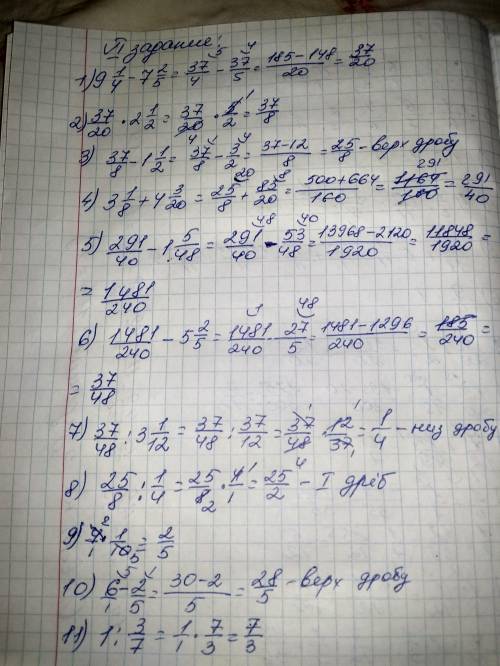 VI задание:
1) 9 1/4 - 7 2/5 = 37/4 - 37/5 = (185-148)/20 = 37/20
2) 37/20 · 2 1/2 = 37/20 · 5/2 = 37/8
3) 37/8 - 1 1/2 = 37/8 - 3/2 = (37-12)/8 = 25/8 - верх дробу
4) 3 1/8 + 4 3/20 = 25/8 + 83/20 = (500+664)/160 = 1164/160 = 291/40
5) 291/40 - 1 5/48 = 291/40 - 53/48 = (13968-2120)/1920 = 11848/1920 =
= 1481/240
6) 1481/240 - 5 2/5 = 1481/240 - 27/5 = (1481-1296)/240 = 185/240 =
= 37/48
7) 37/48 : 3 1/12 = 37/48 : 37/12 = 37/48 · 12/37 = 1/4 - низ дробу
8) 25/8 : 1/4 = 25/8 · 4/1 = 25/2 - I дрёб
9) 4/1 · 1/10 = 2/5
10) 6/1 - 2/5 = (30-2)/5 = 28/5 - верх дробу
11) 1 : 3/7 = 1/1 · 7/3 = 7/3